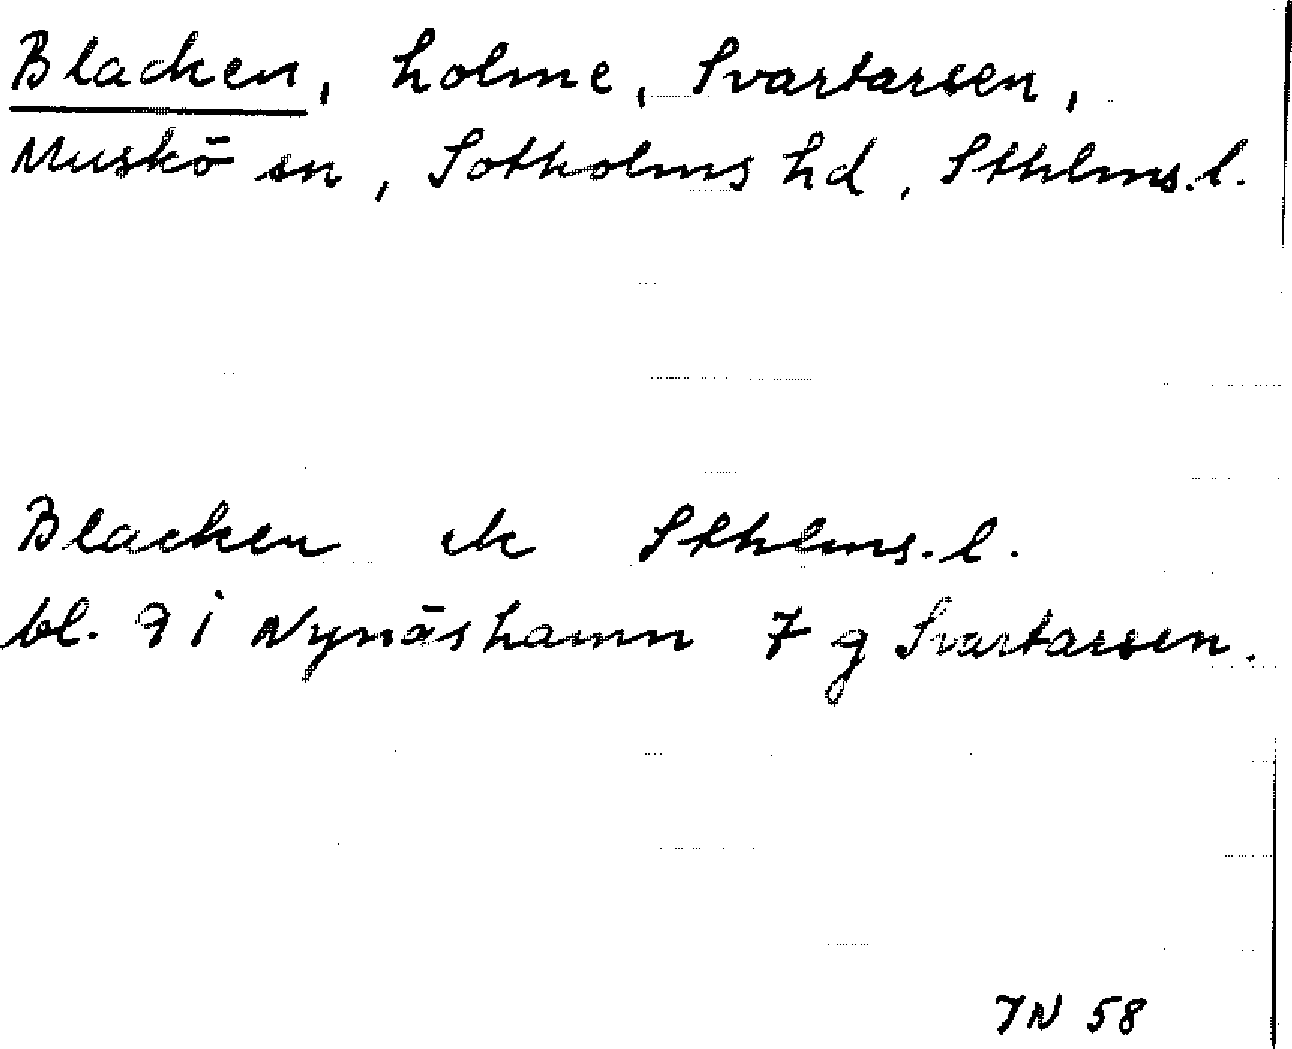 Blacken, holme, Svartarsen,
Muskö sn, Sotholms hd, Sthlms.l.
Blacken ek Sthlms.l.
bl. 7 i Nynäshamn 7 g Svartarsen.
JN 58